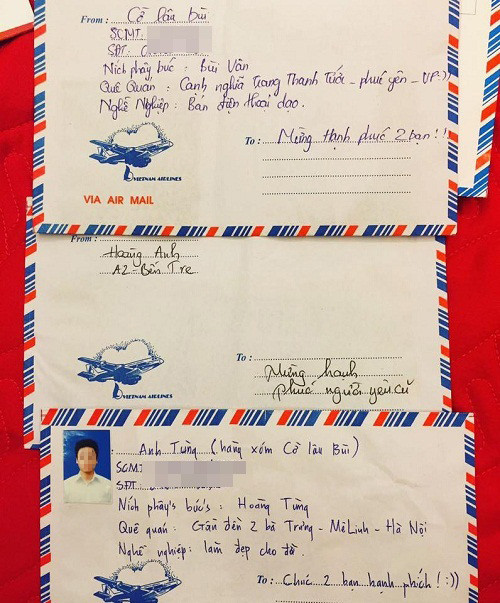 From : Cò lâu bùi
SCMT:
SĐT: 0
Ních phây búc : Bùi Vân
Quê Quán : Cạnh nghĩa trang Thanh Tước - phúc yên - VP :))
Nghề Nghiệp : Bán điện thoại dạo.
To : Mừng Hạnh phúc 2 bạn !!
VIETNAM AIRLINES
VIA AIR MAIL
From :
Hoàng Anh
A2 - Bến Tre
To :
Mừng hạnh
phúc người yêu cũ
VIETNAM AIRLINES
Anh Tùng (hàng xóm Cò lâu Bùi)
SCMT
SĐT:
Ních phây's búc's : Hoàng Tùng
Quê quán : Gần đền 2 bà Trưng - Mê Linh - Hà Nội
Nghề nghiệp : làm đẹp cho đời.
To : Chúc 2 bạn hạnh phích ! :))